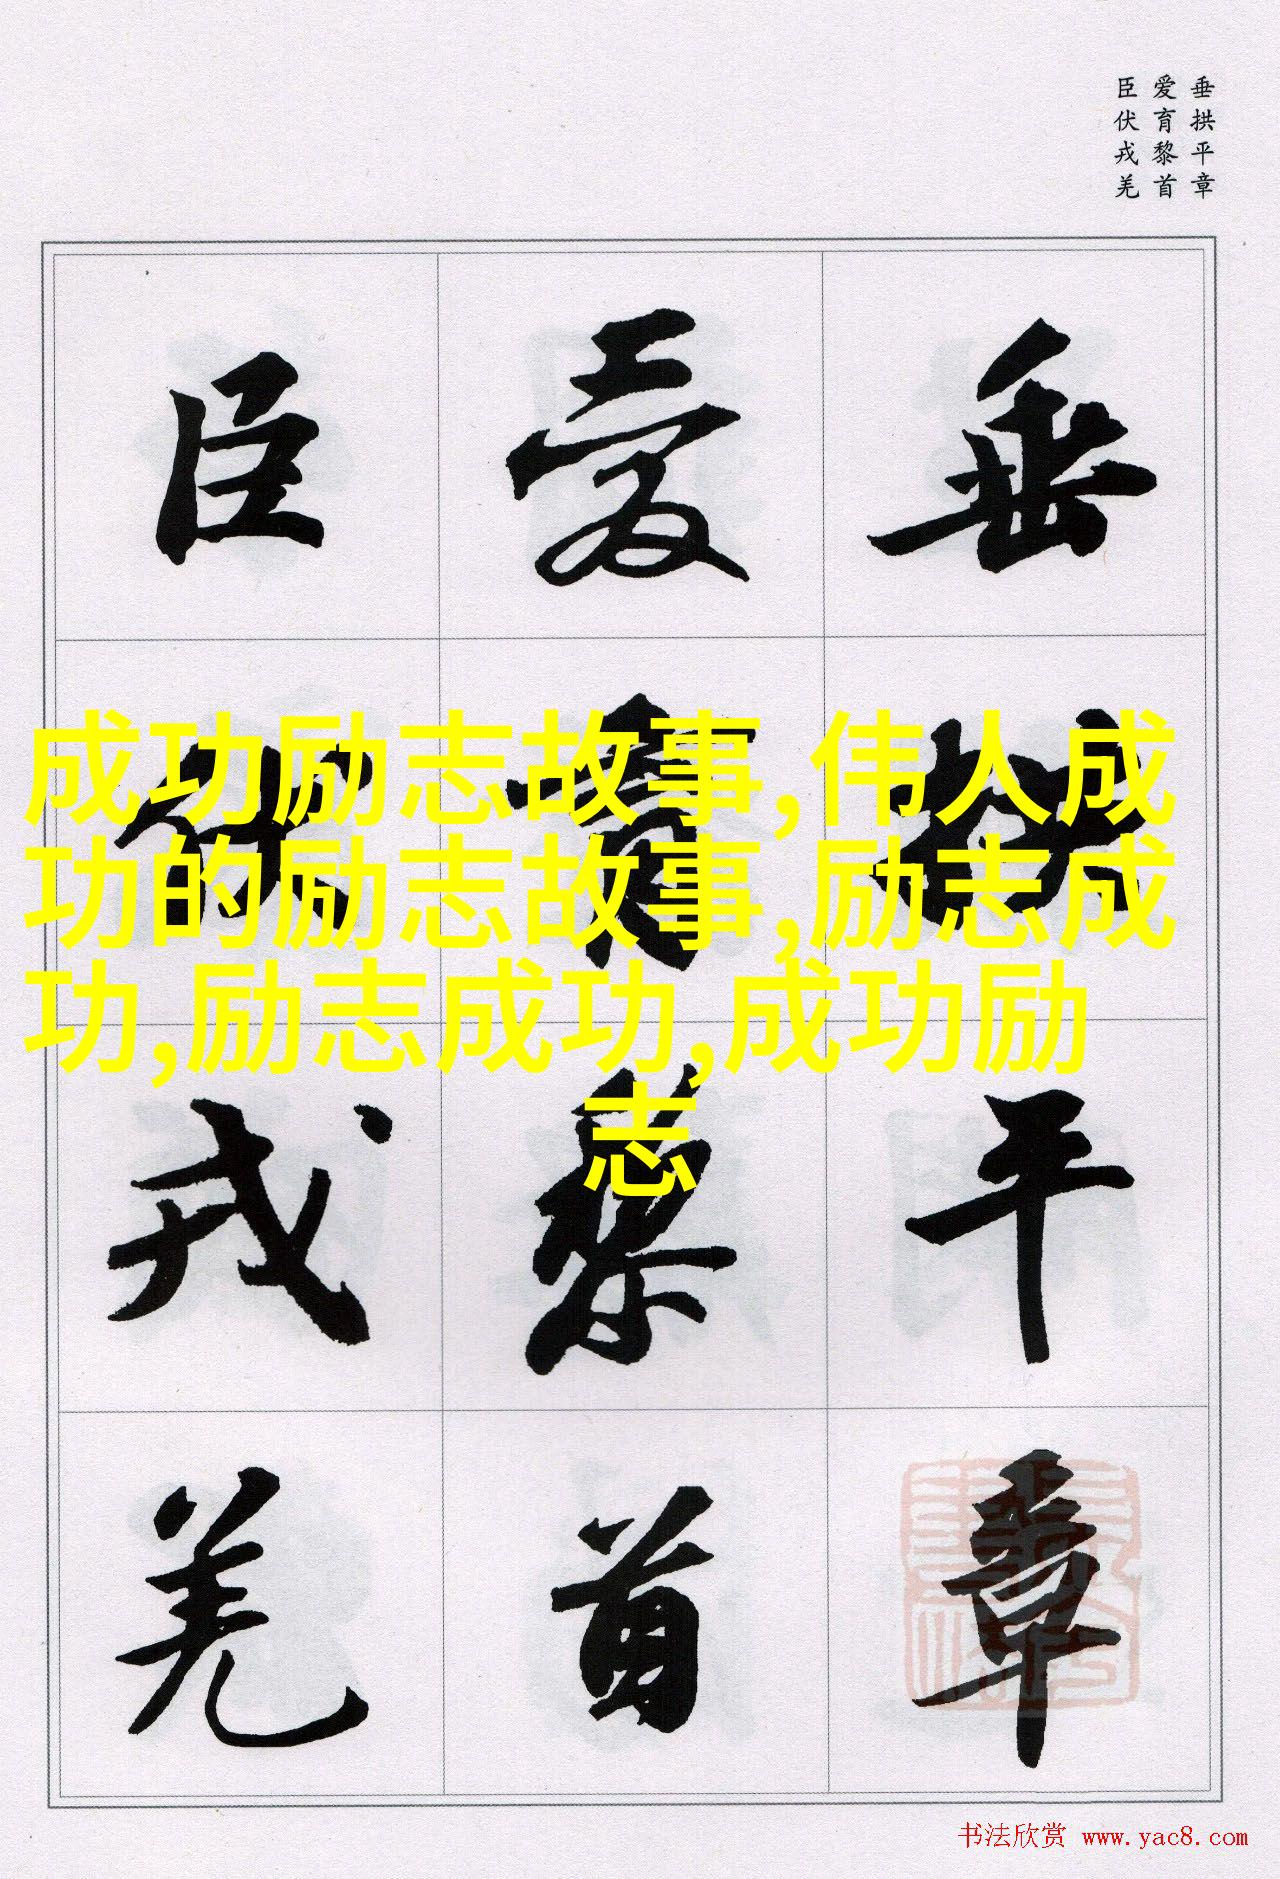 垂拱平章
爱育黎首
臣伏戎羌
垂拱平章
爱育黎首
臣伏戎羌
成功励志故事,伟人成
功的励志故事,励志成
功,励志成功,成功励
志
书法欣赏 www.yac8.com